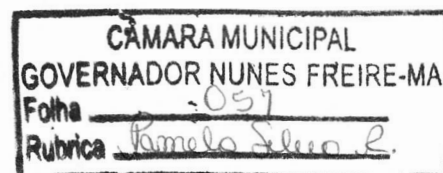 CÂMARA MUNICIPAL
GOVERNADOR NUNES FREIRE-MA
Folha 057
Rubrica Pamela Silva C.